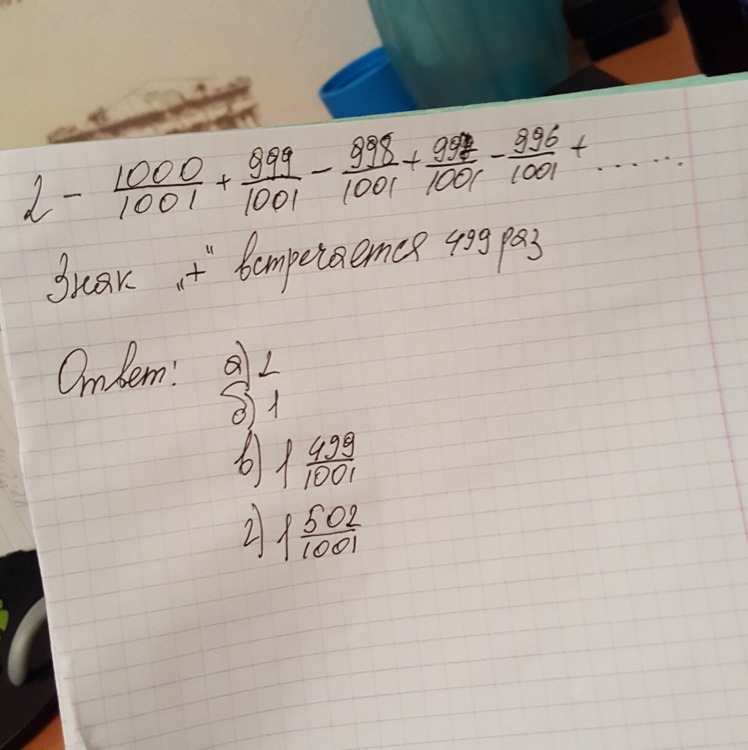 2 - 1000/1001 + 999/1001 - 998/1001 + 997/1001 - 996/1001 + ......
Знак „+" встречается 499 раз
Ответ: а) 2
б) 1
в) 1 499/1001
г) 1 502/1001